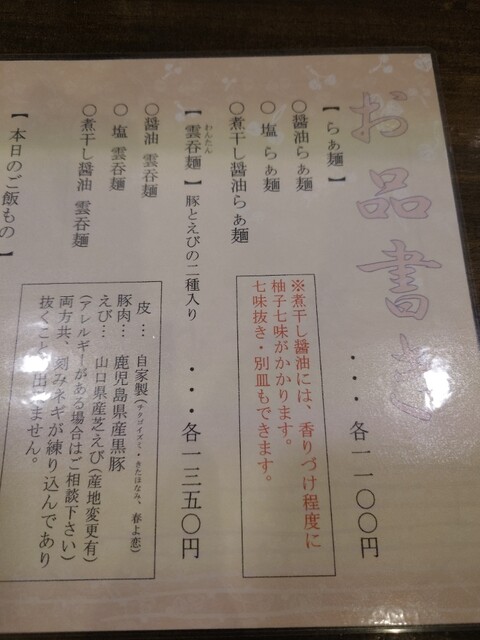 お品書き
【らぁ麺】
・・・各一一〇〇円
〇醤油らぁ麺
〇 塩 らぁ麺
〇煮干し醤油らぁ麺
※煮干し醤油には、香りづけ程度に
柚子七味がかかります。
七味抜き・別皿もできます。
【雲呑麺】豚とえびの二種入り
わんたん
・・・各一三五〇円
〇醤油 雲呑麺
〇 塩 雲呑麺
〇煮干し醤油 雲呑麺
皮… 自家製(チクゴイズミ・きたほなみ、春よ恋)
豚肉… 鹿児島県産黒豚
えび… 山口県産芝えび(産地変更有)
(アレルギーがある場合はご相談下さい)
両方共、刻みネギが練り込んであり
抜くこと出来ません。
【本日のご飯もの】